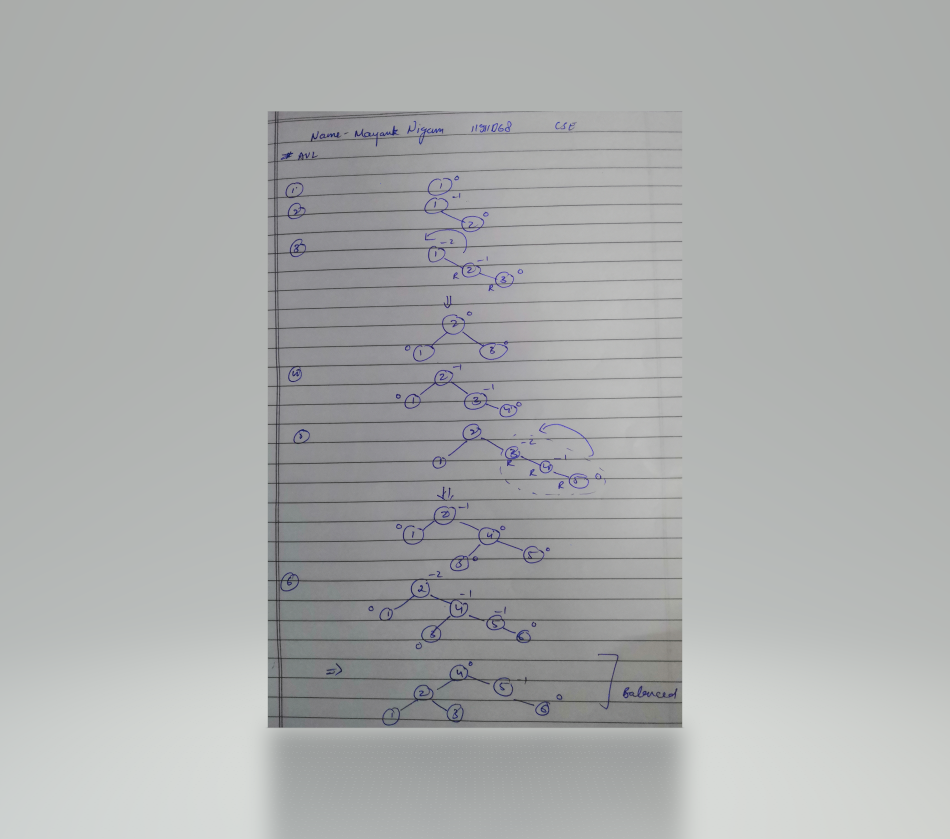 Name - Mayank Nigam CSE
# AVL
1 1 0
2 1 -1
2 0
3 1 -2
R 2 -1
R 3 0
⇓
2 0
0 1 3 0
4 2 -1
0 1 3 -1
4 0
5 2
1 3 -2
R
R 4 -1
R 5 0
⇓
2 -1
0 1 4 0
3 0 5 0
6 2 -2
0 1 4 -1
3 5 -1
0 6 0
⇒ 4 0
2 5 -1
1 3 6 0
Balanced